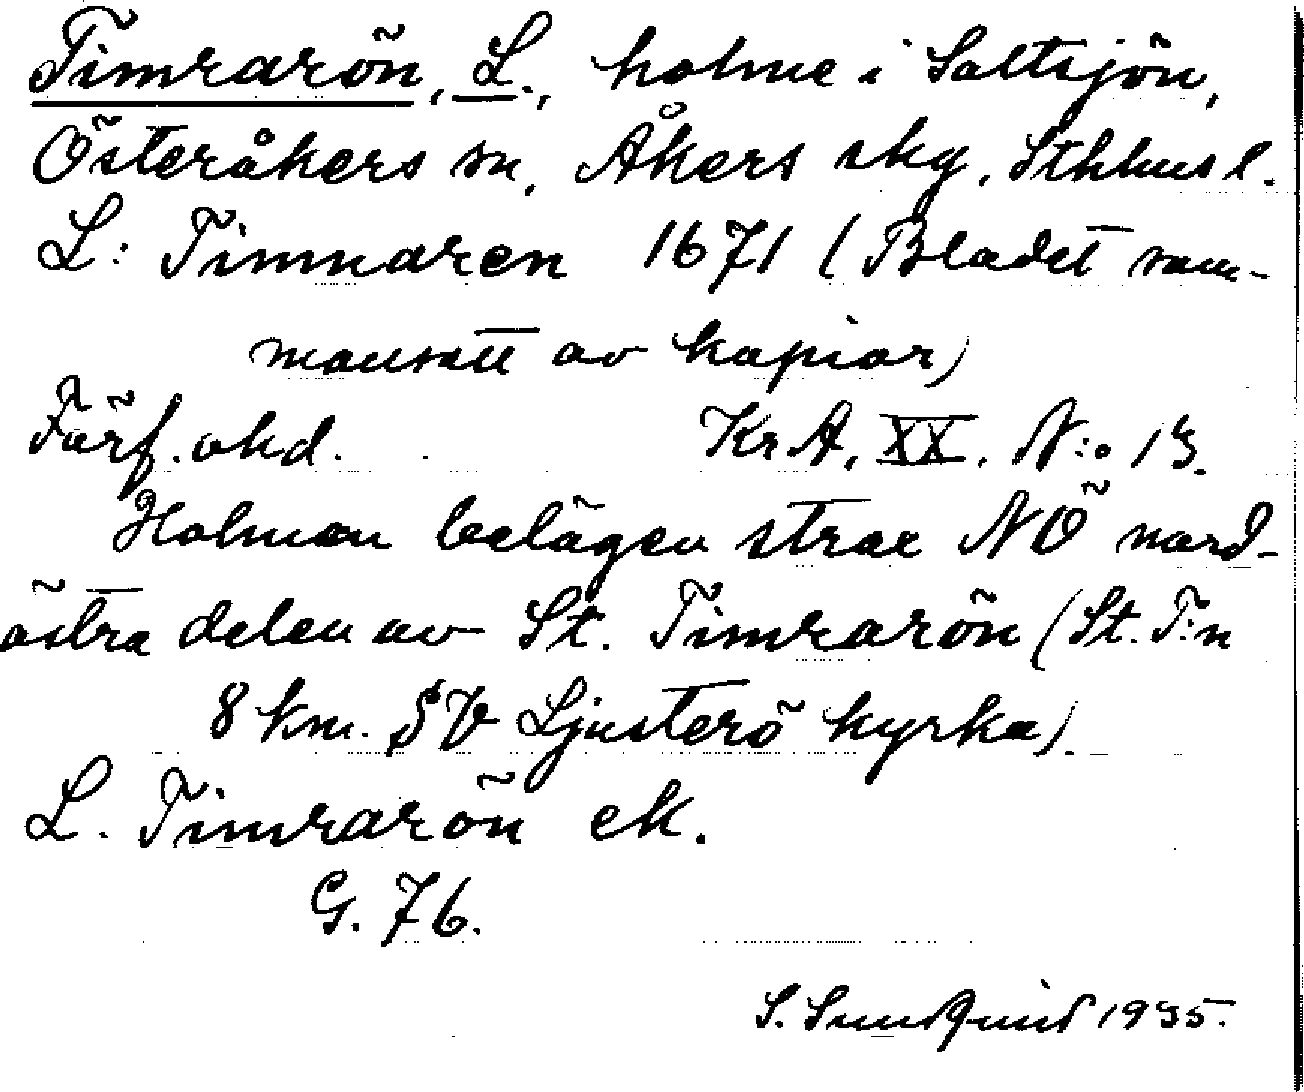 Timrarön, L., holme i Saltsjön,
Österåkers sn, Åkers skg, Sthlms l.
L: Timnaren 1671 (Bladet sam-
mansatt av kopior)
Förf. okd. Kr A, XX, N:o 13.
Holmen belägen strax NO nord-
östra delen av St. Timrarön (St. T:n
8 km. SV Ljusterö kyrka).
L. Timrarön ek.
G. 76.
S. Sundquist 1935.